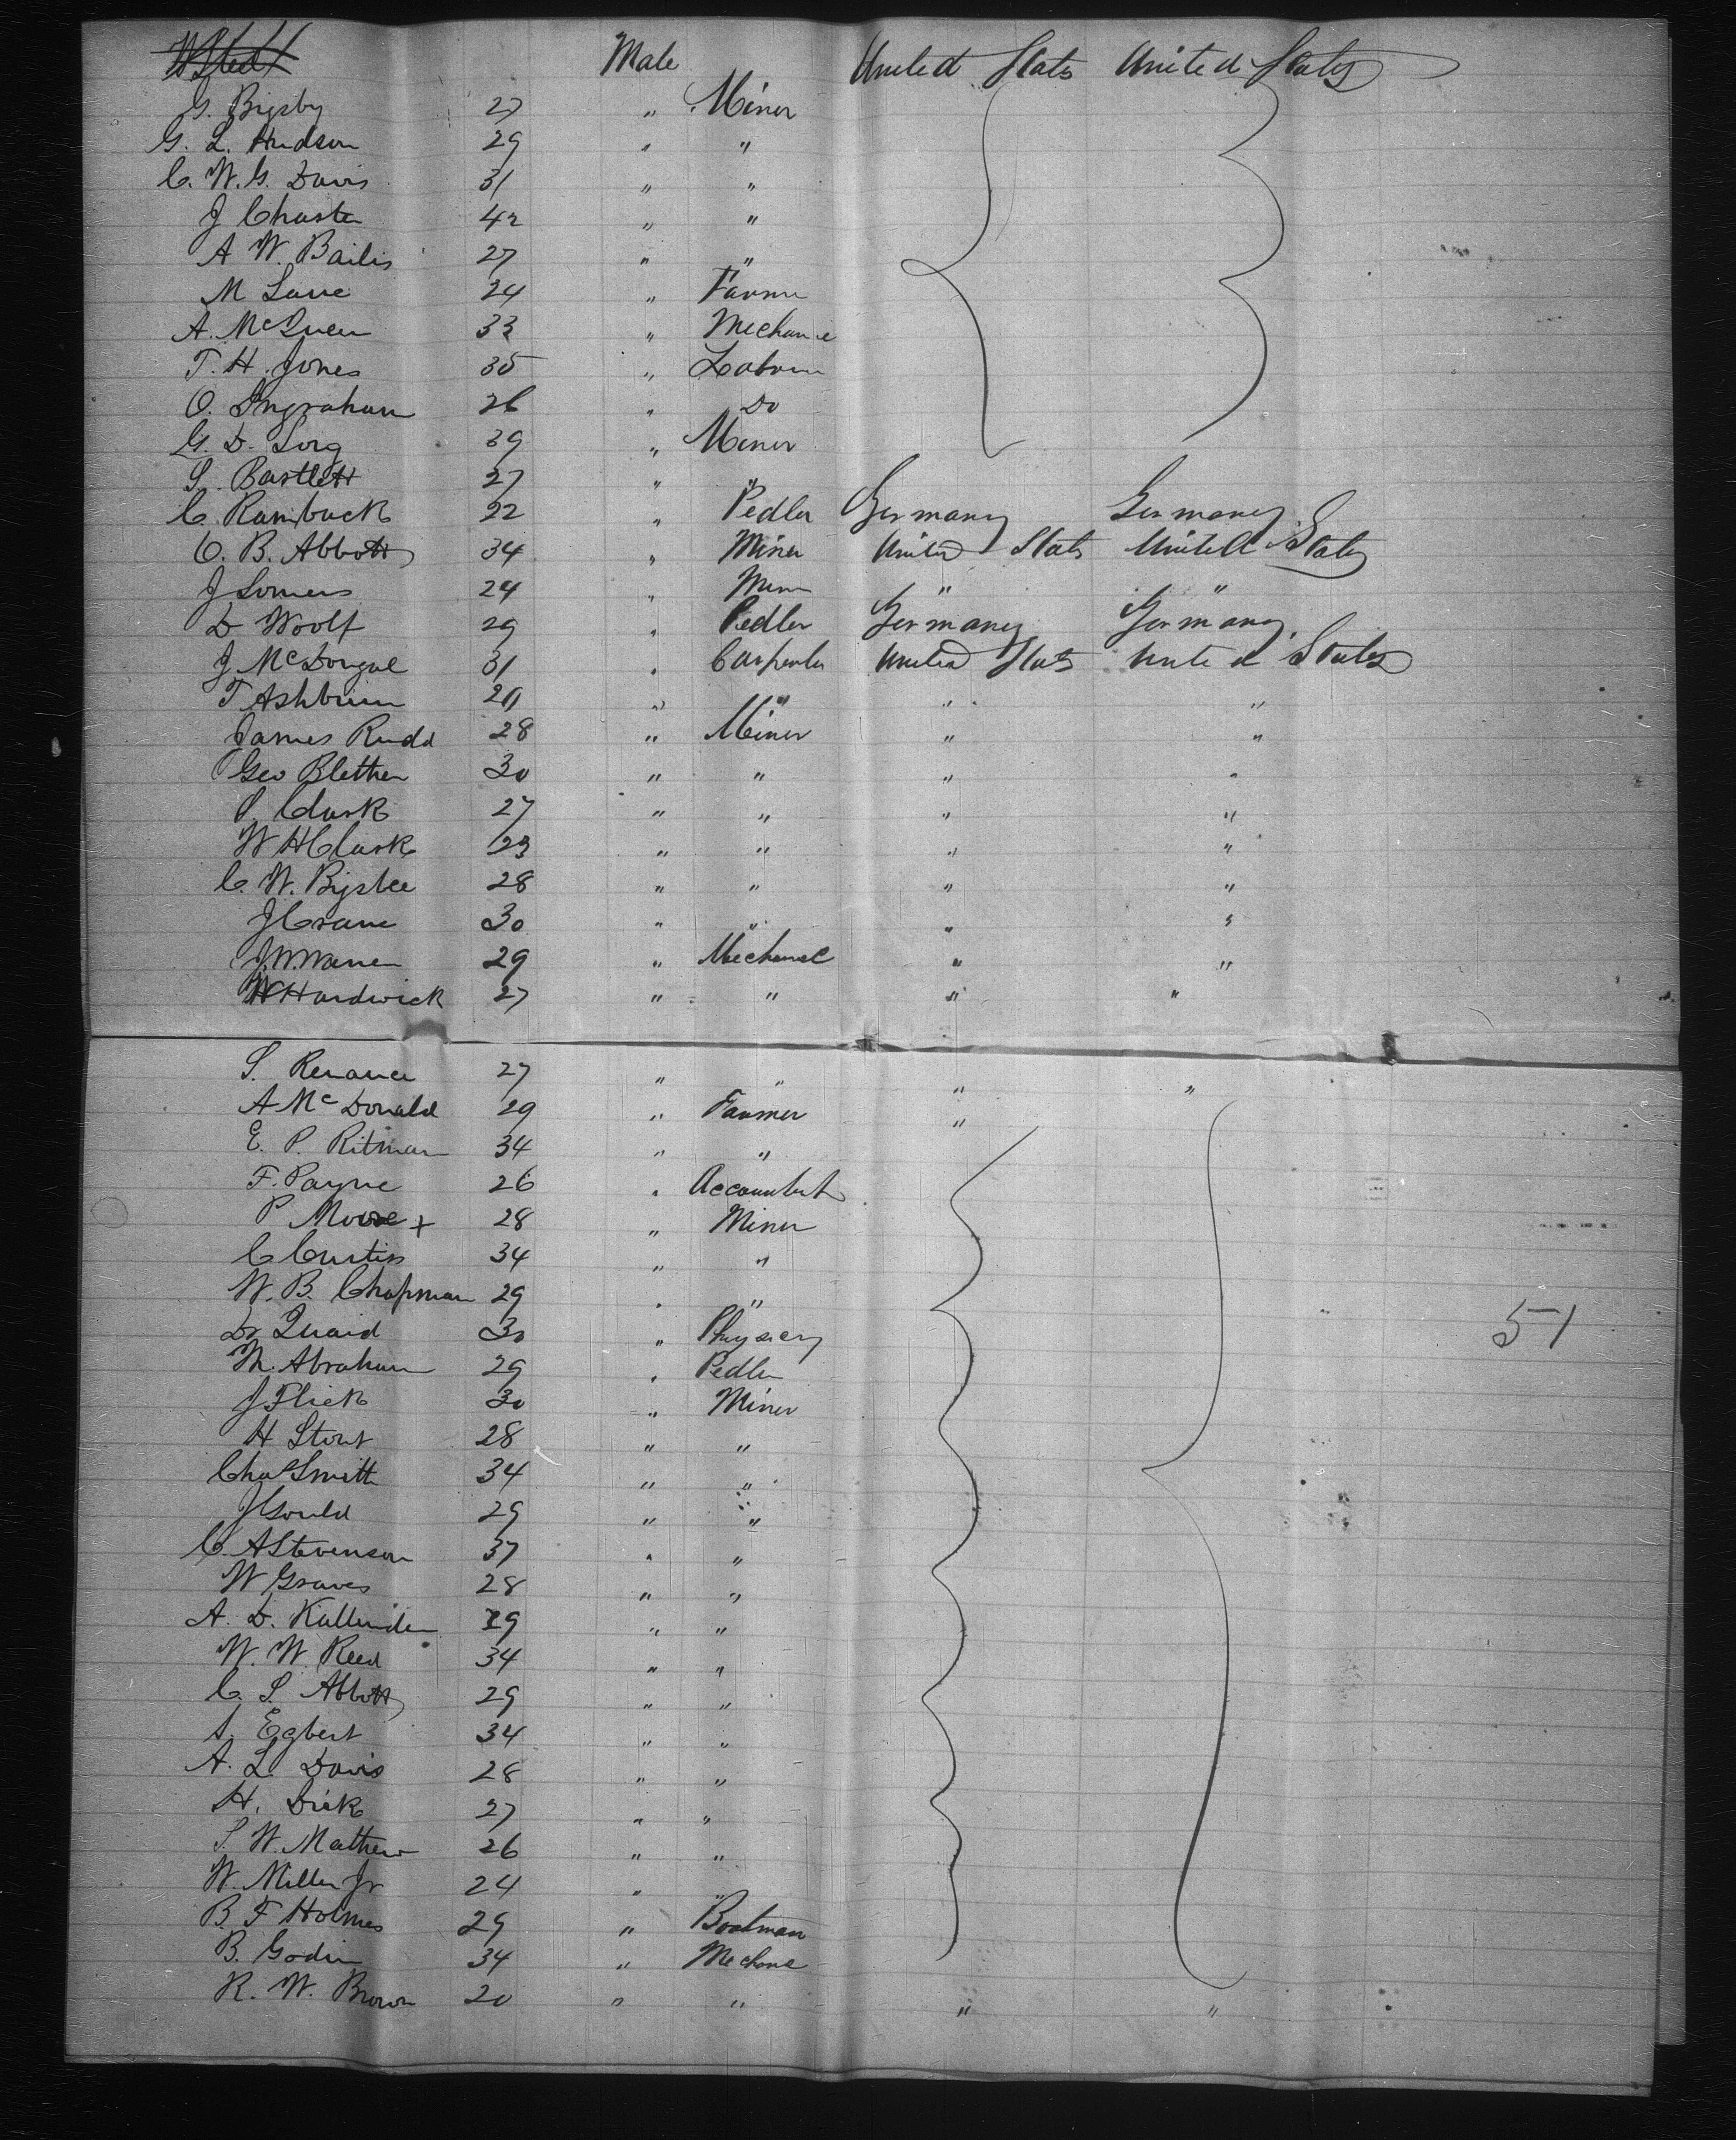 Male United States United States
G. Bigsby 27 " Miner
G. L. Hudson 29 " "
C. W. G. Davis 31 " "
J Chaster 42 " "
A W. Bailis 27 " "
M Lane 24 " Farmer
A. McQueen 33 " Mechanic
T. H. Jones 35 " Laborer
O. Ingraham 26 " Do
G. D. Long 39 " Miner
S. Bartlett 27 " "
C. Rambach 22 " Pedler Germany Germany
C. B. Abbott 34 " Miner United States United States
J Somers 24 " Miner " "
D Woolf 29 " Pedler Germany Germany
J. McDougal 31 " Carpenter United States United States
T Ashburn 20 " " " "
James Rudd 28 " Miner " "
Geo Blethen 30 " " " "
P. Clark 27 " " " "
W H Clark 23 " " " "
C. W. Bigslee 28 " " " "
J Crane 30 " " " "
J. W. Warren 29 " Mechanic " "
W Hardwick 27 " " " "
S. 27 " " " "
A McDonald 29 " Farmer "
E. P. Ritman 34 " "
F. Payne 26 " Accountant
P Moore + 28 " Miner
C Curtiss 34 " "
W. B. Chapman 29 " "
Dr Quaid 30 " 51
M. Abraham 29 " Pedler
J Flick 30 " Miner
H Stout 28 " "
Chas Smith 34 " "
J Gould 29 " "
C. A Stevenson 37 " "
W Graves 28 " "
A. D. 29 " "
W. W. Reed 34 " "
C. S. Abbott 29 " "
A. Egbert 34 " "
A. L. Davis 28 " "
H. Dick 27 " "
S. W. Mathew 26 " "
W. Miller Jr 24 " "
B. F Holmes 29 " Boatman
B. Godin 34 " Mechanic
R. W. Brown 20 " " " "